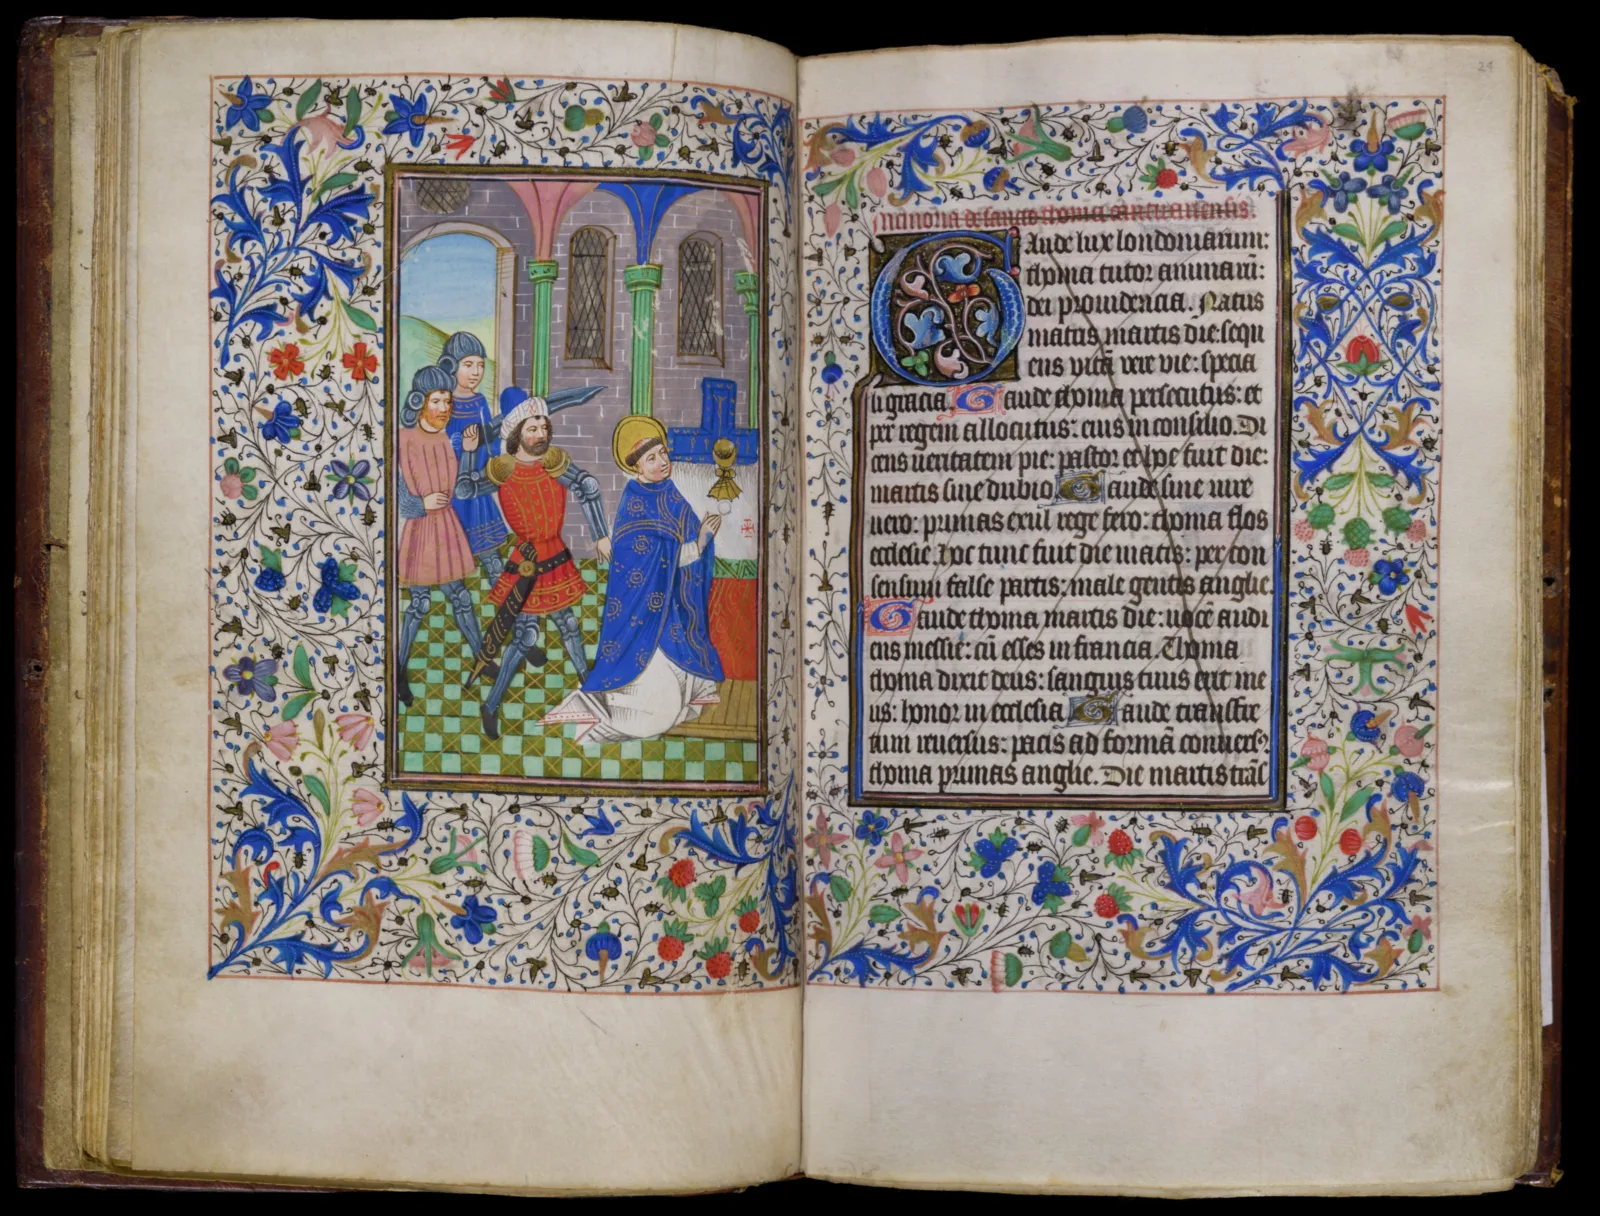 24
Memoria de sancto thoma cantuariensis.
Gaude lux londoniarum:
thoma tutor animarū:
dei prouidencia. Natus
matus martis die: sequ
ens vitā vere vie: specia
li gracia. Gaude thoma persecutus: et
per regem allocutus: eius in consilio. Di
cens ueritatem pie: pastor et hoc fuit die:
martis sine dubio Gaude sine uire
uero: primas exul rege fero: thoma flos
ecclesie. Hoc tunc fuit die matis: per con
sensum false partis: male gentis anglie.
Gaude thoma martis die: uocē audi
ens messie: cū esses in francia. Thoma
thoma dixit deus: sanguis tuus erit me
us: honor in ecclesia Gaude transfre
tum reuersus: pacis ad formā conuers᷒
thoma primas anglie. Die martis trāf